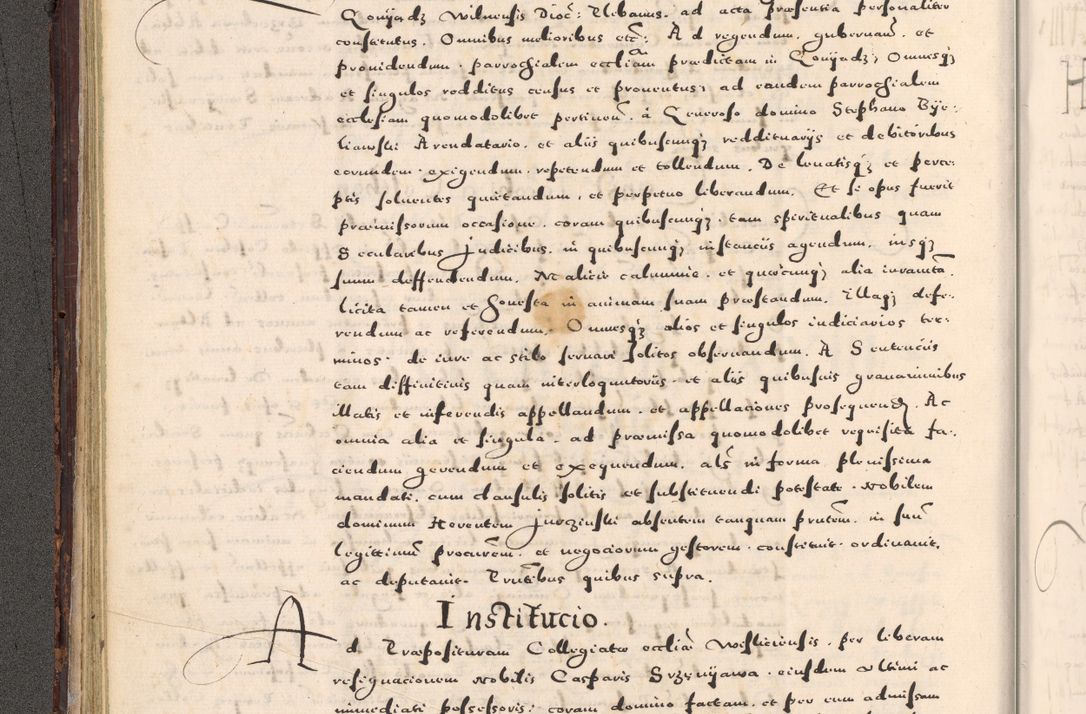 Gonyądz Wilnensis Dioc: Plebanus. ad acta præsentia personaliter
constitutus. Omnibus melioribus etc: Ad regendum, gubernan. et
prouidendum. parrochialem eccliam prædictam in Gonyądz, Omnesq;
et singulos redditus census et prouentus, ad eandem parrochialem
ecclesiam quomodolibet pertinen. à Generoso domino Stephano Bye:
lianski Arendatario. et aliis quibuscunq; reddituarijs et debitoribus
eorundem. exigendum. repetendum et tollendum. De leuatisq; et perce:
ptis soluentes quitandum, et perpetuo liberandum. Et si opus fuerit
præmissorum occasione. coram quibuscunq; tam spiritualibus quam
Secularibus Judicibus. in quibuscunq; instanciis agendum, insq;
suum deffendendum. Malicie calumnie. et quæcunq; alia iuramta.
licita tamen et honesta in animam suam præstandum. Illaq; defe:
rendum ac referendum. Omnesq; alios et singulos iudiciarios ter:
minos. de iure ac stilo seruari solitos obseruandum. A Sentenciis
tam diffinitiuis quam interloquutoriis. et aliis quibusuis grauaminibus
illatis et inferendis appellandum. et appellaciones prosequend. Ac
omnia alia et singula. ad præmissa quomodolibet requisita fa:
ciendum gerendum et exequendum. als in forma plenissima
mandati. cum clausulis solitis et substituendi potestate. Nobilem
dominum Jurzinski absentem tanquam prntem. in suu
legittimu procurem. et negociorum gestorem. constituit. ordinauit,
ac deputauit. Pntibus quibus supra.
Institucio.
Ad Præposituram Collegiatæ ecclia Wisliciensis. per liberam
resignacionem Nobilis Casparis Srzenyawa. eiusdem vltimi ac
immediati possessoris. coram domino factam. et per eum admissam